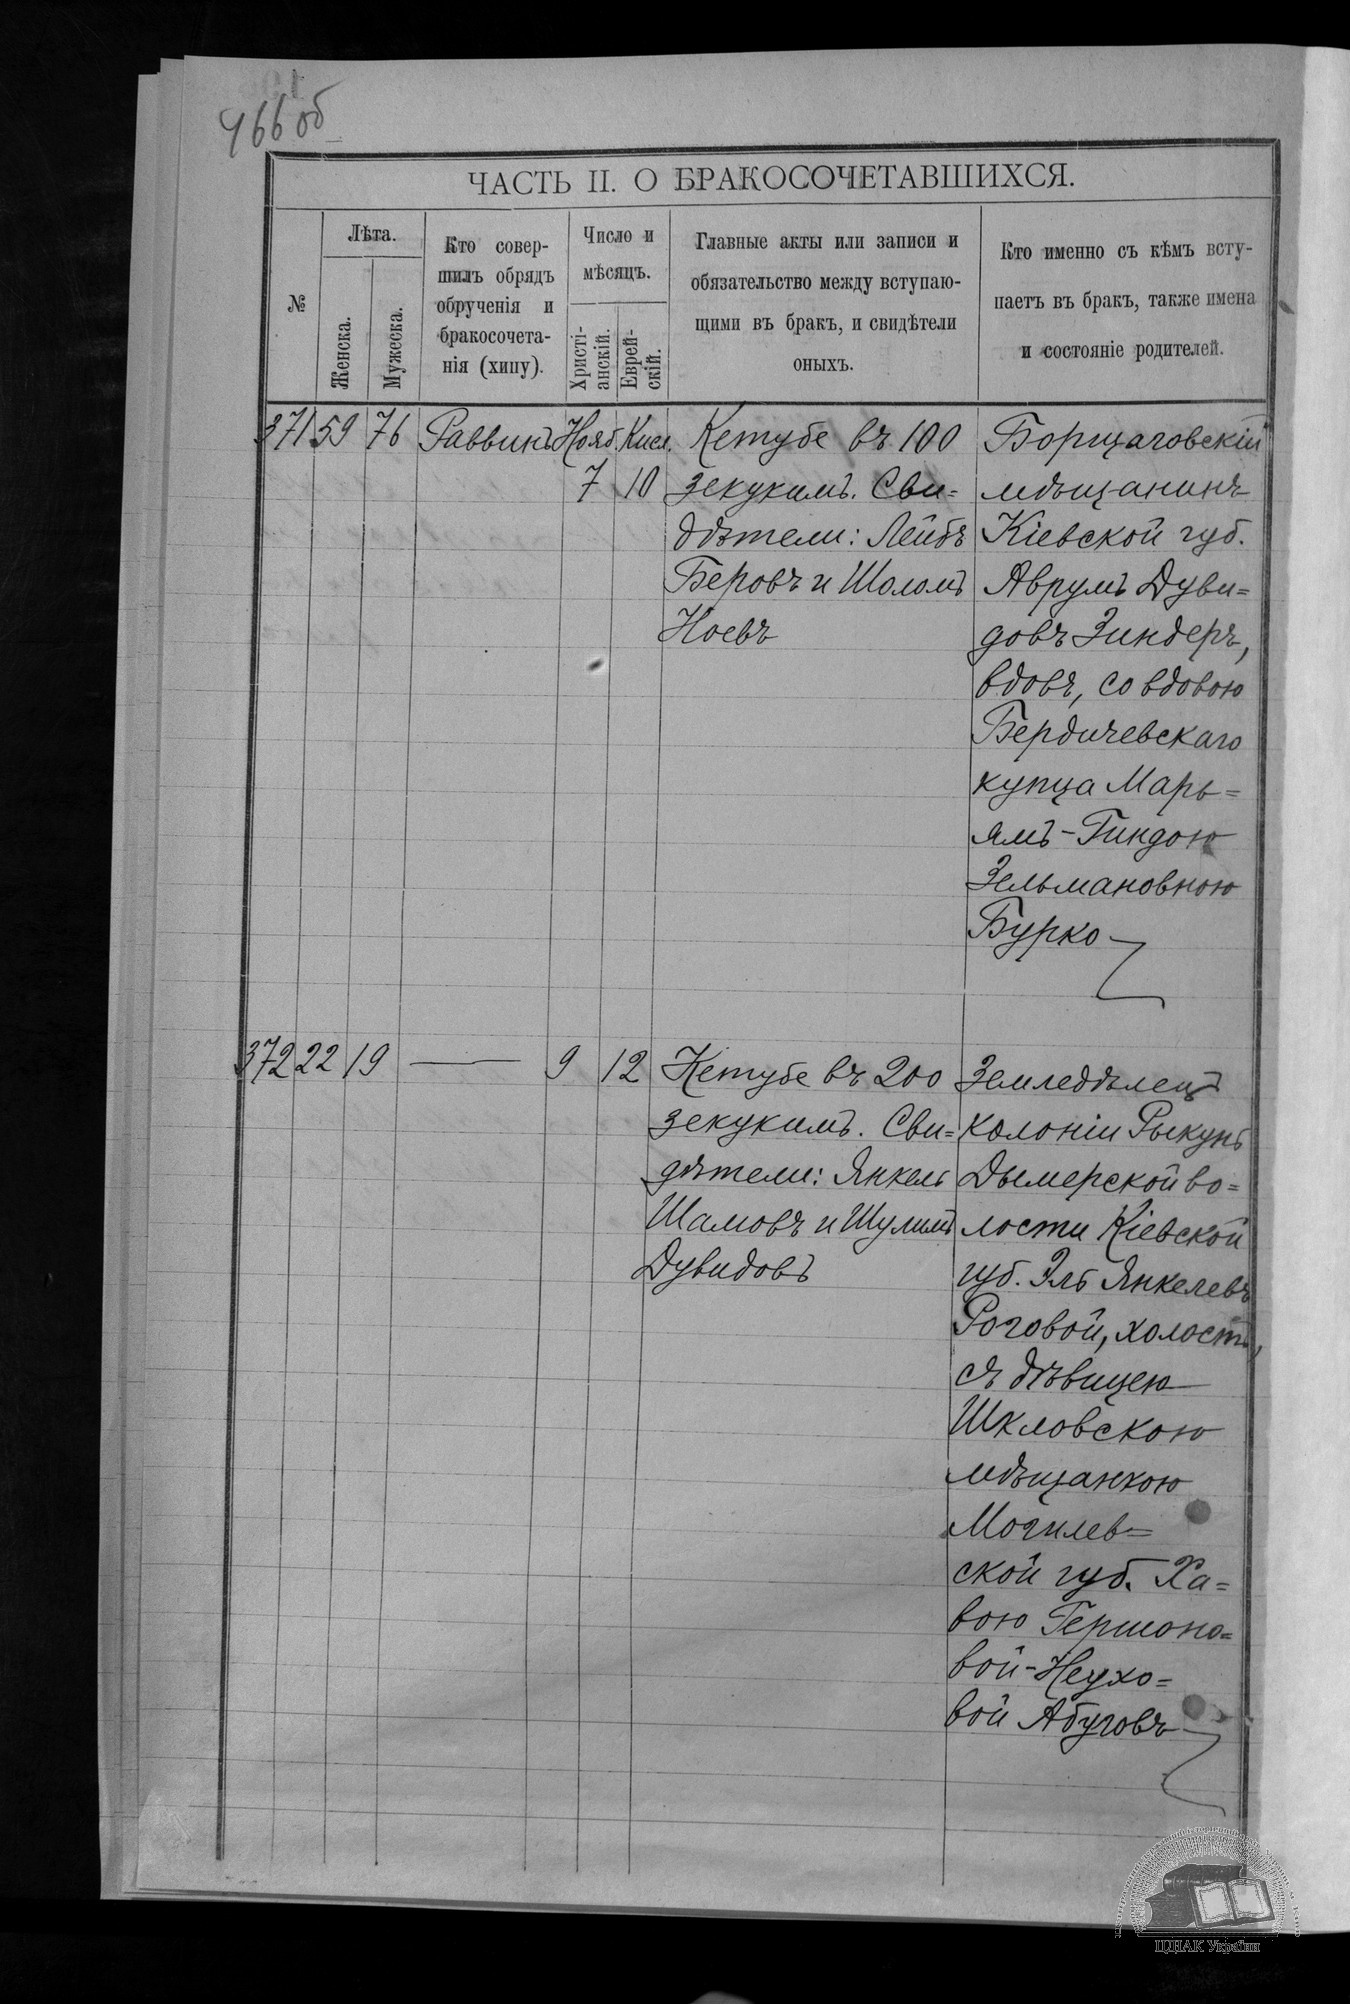 466 об
ЧАСТЬ II. О БРАКОСОЧЕТАВШИХСЯ.
№
Лѣта.
Женска.
Мужеска.
Кто совер-
шилъ обрядъ
обрученія и
бракосочета-
нія (хипу).
Число и
мѣсяцъ.
Христі-
анскій.
Еврей-
скій.
Главные акты или записи и
обязательство между вступаю-
щими въ бракъ, и свидѣтели
оныхъ.
Кто именно съ кѣмъ всту-
паетъ въ бракъ, также имена
и состояніе родителей.
371 59 76 Раввинъ Нояб. Кисл.
7 10
Кетубе въ 100
зекукимъ. Сви=
дѣтели: Лейбъ
Беровъ и Шоломъ
Ноевъ
Борщаговскій
мѣщанинъ
Кіевской губ.
Аврумъ Дуви=
довъ Зиндеръ,
вдовъ, со вдовою
Бердичевскаго
купца Марь=
ямъ-Гиндою
Зельмановною
Бурко
372 22 19 — 9 12
Кетубе въ 200
зекукимъ. Сви=
дѣтели: Янкель
Шамовъ и Шулимъ
Дувидовъ
Земледѣлецъ
колоніи Рыкунь
Дымерской во=
лости Кіевской
губ. Эль Янкелевъ
Роговой, холостъ,
съ дѣвицею
Шкловскою
мѣщанкою
Могилев=
ской губ. Ха=
вою Гершоно=
вой-Неухо=
вой Абуговъ
ЦДІАК України